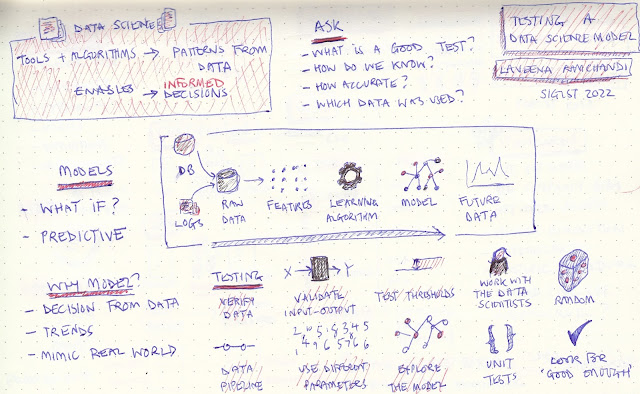 DATA SCIENCE
TOOLS + ALGORITHMS → PATTERNS FROM
DATA
ENABLES → INFORMED
DECISIONS
ASK
- WHAT IS A GOOD TEST?
- HOW DO WE KNOW?
- HOW ACCURATE?
- WHICH DATA WAS USED?
TESTING A
DATA SCIENCE MODEL
LAVEENA RAMCHANDI
SIGIST 2022
MODELS
- WHAT IF?
- PREDICTIVE
DB
LOGS
RAW
DATA
FEATURES
LEARNING
ALGORITHM
MODEL
FUTURE
DATA
WHY MODEL?
- DECISION FROM DATA
- TRENDS
- MIMIC REAL WORLD
TESTING
VERIFY
DATA
X → Y
VALIDATE
INPUT-OUTPUT
TEST THRESHOLDS
WORK WITH
THE DATA
SCIENTISTS
RANDOM
DATA
PIPELINE
USE DIFFERENT
PARAMETERS
EXPLORE
THE MODEL
{ }
UNIT
TESTS
LOOK FOR
'GOOD ENOUGH'